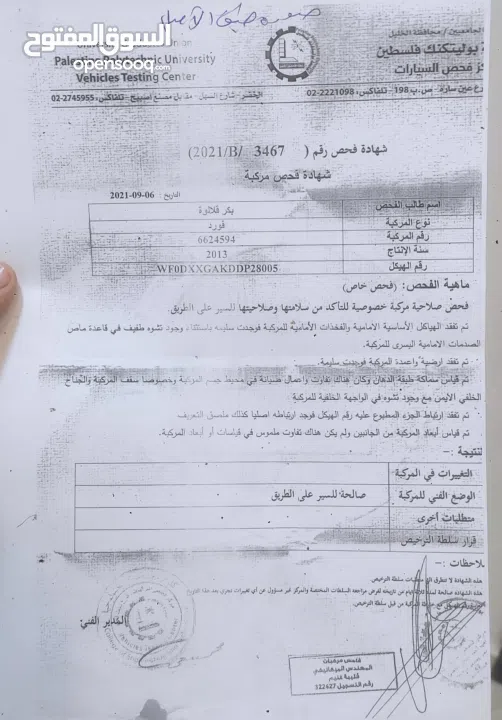 صورة طبق الأصل
السوق المفتوح
opensooq.com
Palestine Polytechnic University
Vehicles Testing Center
الجامعيين / محافظة الخليل
بوليتكنك فلسطين
ز فحص السيارات
ع عين سارة - ص.ب 198 - تلفاكس: 2221098-02
تلفاكس: 2745955-02
شهادة فحص رقم ( 3467 /2021/B)
شهادة فحص مركبة
التاريخ : 06-09-2021
اسم طالب الفحص بكر قلالوة
نوع المركبة فورد
رقم المركبة 6624594
سنة الإنتاج 2013
رقم الهيكل WF0DXXGAKDDP28005
ماهية الفحص: (فحص خاص)
فحص صلاحية مركبة خصوصية للتأكد من سلامتها وصلاحيتها للسير على الطريق.
تم تفقد الهياكل الأساسية الامامية والفخذات الأمامية للمركبة فوجدت سليمه باستثناء وجود تشوه طفيف في قاعدة ماص
الصدمات الامامية اليسرى للمركبة.
تم تفقد ارضية واعمدة المركبة فوجدت سليمة.
تم قياس سماكة طبقة الدهان وكان هناك تفاوت واعمال صيانة في محيط جسم المركبة وخصوصا سقف المركبة والجناح
الخلفي الأيمن مع وجود تشوه في الواجهة الخلفية للمركبة
تم تفقد ارتباط الجزء المطبوع عليه رقم الهيكل فوجد ارتباطه اصليا كذلك ملصق التعريف
تم قياس أبعاد المركبة من الجانبين ولم يكن هناك تفاوت ملموس في قياسات أو أبعاد المركبة.
لنتيجة :-
التغييرات في المركبة
الوضع الفني للمركبة صالحة للسير على الطريق
متطلبات أخرى
قرار سلطة الترخيص
لاحظات :-
هذه الشهادة لا تتطرق الى متطلبات سلطة الترخيص.
هذه الشهادة صالحة لمدة ثلاثة أيام من تاريخه لغرض مراجعة السلطات المختصة والمركز غير مسؤول عن أي تغييرات تجرى بعد هذا التاريخ
المدير الفني
فاحص مركبات
المهندس الميكانيكي
رقم التسجيل 122627